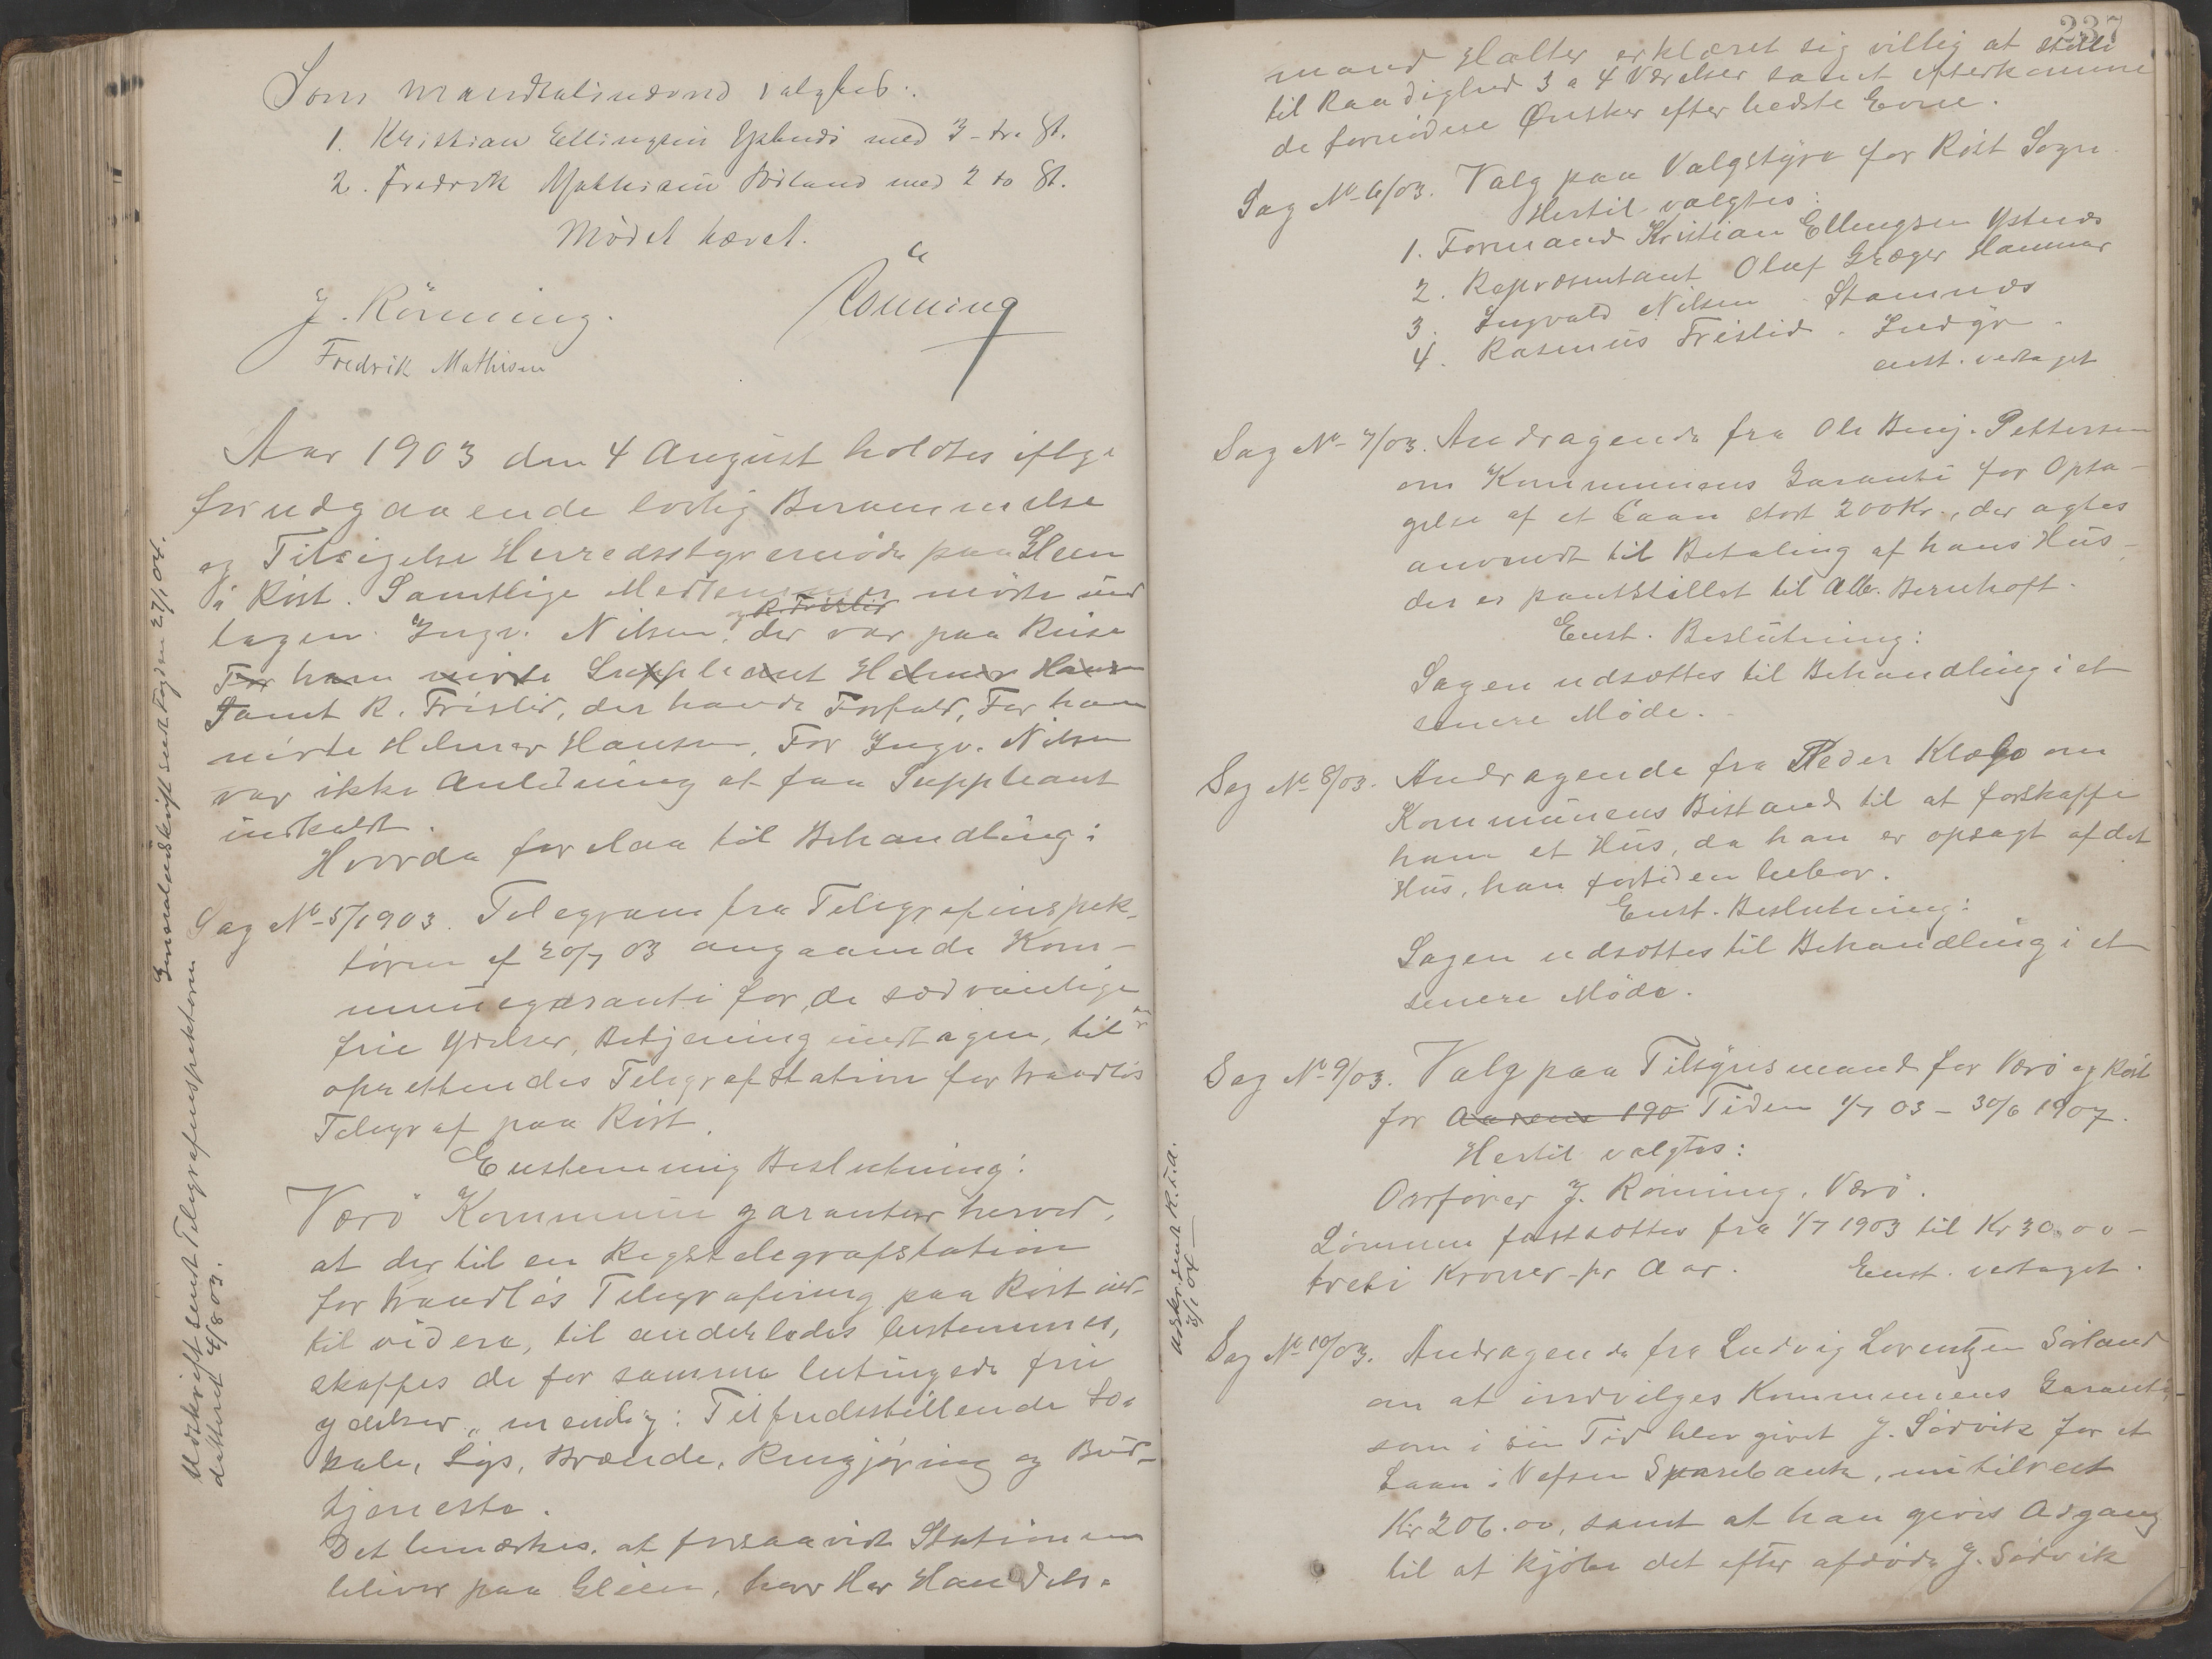 Som Mandtalsmænd valgtes:
1. Kristian Ellingsen Ystnæs med 3 - tre St.
2. Fredrik Mathisen Sørland med 2 to St.
Mødet hævet.
J. Rönning.
Rönning
Fredrik Mathisen
Aar 1903 den 4 August holdtes iflge
forudgaaende lovlig Berammelse
og Tilsigelse Herredsstyremøde paa Gleen
i Røst. Samtlige Medlemmer mødte und
tagen Ingv. Nilsen, og R. Trislid der var paa Reise
For ham mødte Suppleant Helmer Hansen
samt R. Trislid, der havde Forfald, For ham
mødte Helmer Hansen, For Ingv. Nilsen
var ikke Anledning at faa Suppleant
indkaldt.
Hvorda forelaa til Behandling:
Sag No 5/1903. Telegram fra Telegrafinspek-
tøren af 20/7 03 angaaende Kom-
munegaranti for de sædvanlige
frie Ydelser, Betjening undtagen, til en
oprettendes Telegrafstation for traadløs
Telegraf paa Røst.
Enstemmig Beslutning:
Værö Kommune garanterer herved,
at der til en Rigstelegrafstation
for traadløs Telegrafering paa Røst ind-
til videre, til anderledes bestemmes,
skaffes de for samme betingede frie
ydelser, nemlig: Tilfredsstillende Lo-
kale, Lys, Brænde, Rengjøring og Bud-
tjeneste.
Det bemærkes, at forsaavidt Stationen
bliver paa Gleen, har Hr Handels-
Udskrift sendt Telegrafinspektøren
datteret 4/8 03.
Genpartudskrift sendt 27/1 04.
237
mand Halter erklæret sig villig at stille
til Raadighed 3 a 4 Værelser samt efterkomme
de fornødne Ønsker efter bedste Evne.
Sag No 6/03. Valg paa Valgstyre for Røst Sogn
Hertil valgtes:
1. Formand Kristian Ellingsen Ystnæs
2. Repræsentant Olaf Greger Hammer
3. Ingvald Nilsen Stamnæs
4. Rasmus Trislid. Indyr.
enst. vedtaget
Sag No 7/03. Andragende fra Ole Benj. Pettersen
om Kommunens Garanti for Opta-
gelse af et Laan stort 200 Kr., der agtes
anvendt til Betaling af hans Hus-
der er pantstillet til Alb. Bernhoft.
Enst. Beslutning:
Sagen udsættes til Behandling i et
senere Møde.
Sag No 8/03. Andragende fra Peder Klæbo om
Kommunens Bistand til at forskaffe
ham et Hus, da han er opsagt af det
Hus, han fortiden bebor.
Enst. Beslutning:
Sagen udsættes til Behandling i et
senere Møde.
Sag No 9/03. Valg paa Tilsynsmand for Værö og Røst
for Aarene 190 Tiden 1/7 03 - 30/6 1907.
Hertil valgtes:
Ordfører J. Rönning, Værö.
Lønnen fastsættes fra 1/7 1903 til Kr 30.00 -
tredi Kroner pr Aar. Enst. vedtaget.
Udskr. sendt K.t.a.
3/1 04 —
Sag No 10/03. Andragende fra Ludvig Lorentzen Sørland
om at indvilges Kommunens Garanti,
som i sin Tid blev givet J. Sørvik for et
Laan i Vefsen Sparebank, nu tilrest
Kr 206.00, samt at han gives Adgang
til at kjøbe det efter afdøde J. Sørvik